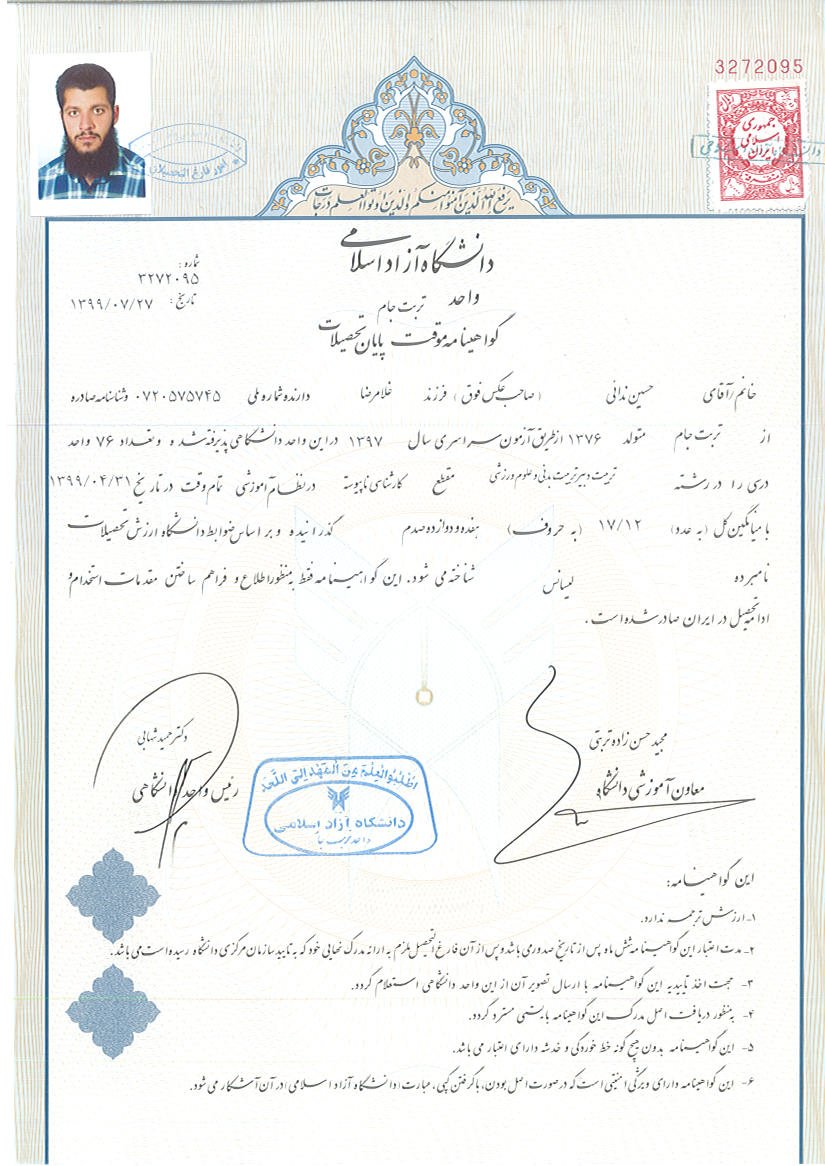 3272095
جمهوری اسلامی ایران
امور فارغ التحصیلان
یرفع الله الذین آمنوا منکم والذین اوتوا العلم درجات
دانشگاه آزاد اسلامی
شماره:
۳۲۷۲۰۹۵
واحد تربت جام
تاریخ: ۱۳۹۹/۰۷/۲۷
گواهینامه موقت پایان تحصیلات
خانم/آقای حسین ندائی (صاحب عکس فوق) فرزند غلامرضا دارنده شماره ملی ۰۷۲۰۵۷۵۷۴۵ وشناسنامه صادره
از تربت جام متولد ۱۳۷۶ ازطریق آزمون سراسری سال ۱۳۹۷ دراین واحد دانشگاهی پذیرفته شد و وتعداد ۷۶ واحد
درسی را در رشته تربیت دبیر تربیت بدنی و علوم ورزشی مقطع کارشناسی ناپیوسته در نظام آموزشی تمام وقت در تاریخ ۱۳۹۹/۰۴/۳۱
با میانگین کل (به عدد) ۱۷/۱۲ (به حروف) هفده و دوازده صدم گذرانیده و بر اساس ضوابط دانشگاه ارزش تحصیلات
نامبرده لیسانس شناخته می شود. این گواهینامه فقط به منظور اطلاع و فراهم ساختن مقدمات استخدام و
ادامه تحصیل در ایران صادر شده است.
مجید حسن زاده تربتی
معاون آموزشی دانشگاه
دکتر حمید شهابی
رئیس واحد دانشگاهی
اطلبوا العلم من المهد الی اللحد
دانشگاه آزاد اسلامی
واحد تربت جام
این گواهینامه:
۱- ارزش ترجمه ندارد.
۲- مدت اعتبار این گواهینامه شش ماه پس از تاریخ صدور می باشد و پس از آن فارغ التحصیل ملزم به ارائه مدرک نهایی خود که به تایید سازمان مرکزی دانشگاه رسیده است می باشد.
۳- جهت اخذ تاییدیه این گواهینامه با ارسال تصویر آن از این واحد دانشگاهی استعلام گردد.
۴- به منظور دریافت اصل مدرک این گواهینامه بایستی مسترد گردد.
۵- این گواهینامه بدون هیچ گونه خط خوردگی و خدشه دارای اعتبار می باشد.
۶- این گواهینامه دارای ویژگی امنیتی است که در صورت اصل بودن، با گرفتن کپی، عبارت (دانشگاه آزاد اسلامی) در آن آشکار می شود.